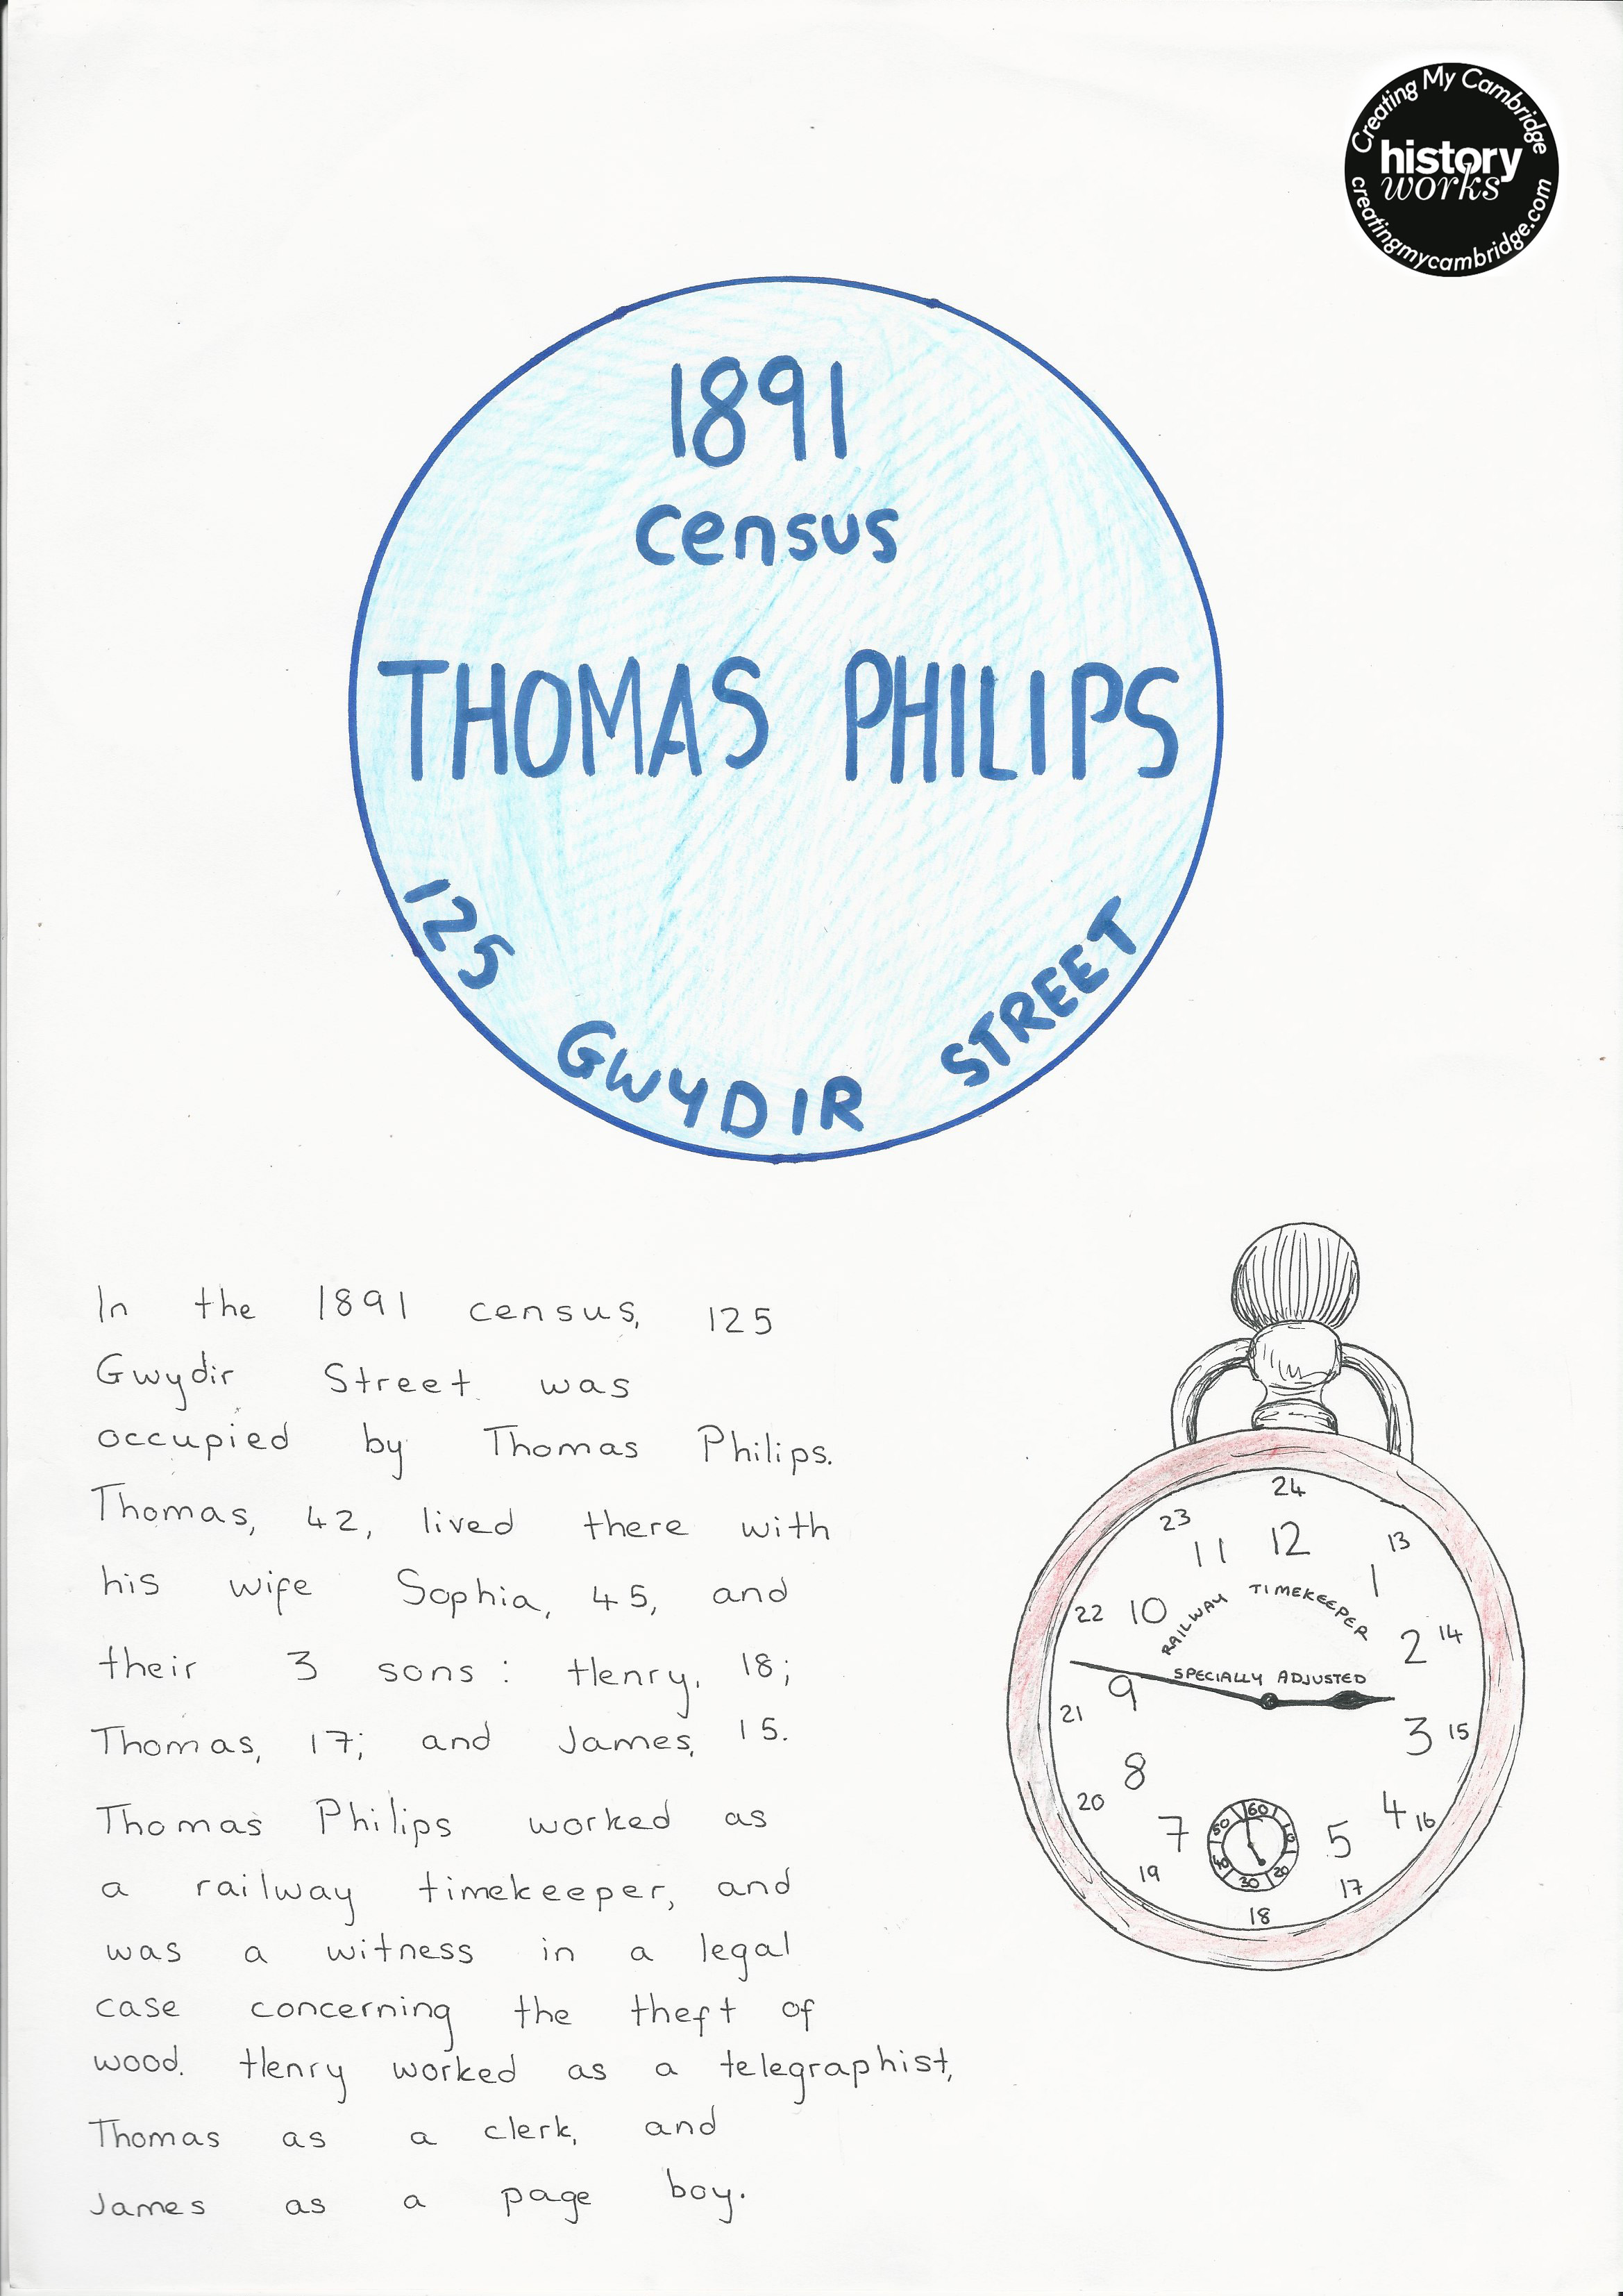 Creating My Cambridge
history
works
creatingmycambridge.com
1891
census
THOMAS PHILIPS
125 GWYDIR STREET
In the 1891 census, 125
Gwydir Street was
occupied by Thomas Philips.
Thomas, 42, lived there with
his wife Sophia, 45, and
their 3 sons: Henry, 18;
Thomas, 17; and James, 15.
Thomas Philips worked as
a railway timekeeper, and
was a witness in a legal
case concerning the theft of
wood. Henry worked as a telegraphist,
Thomas as a clerk, and
James as a page boy.
24
23 13
11 12 1
22 10 2 14
RAILWAY TIMEKEEPER
SPECIALLY ADJUSTED
21 9 3 15
20 8 4 16
7 5
19 17
18
60
50 10
40 20
30